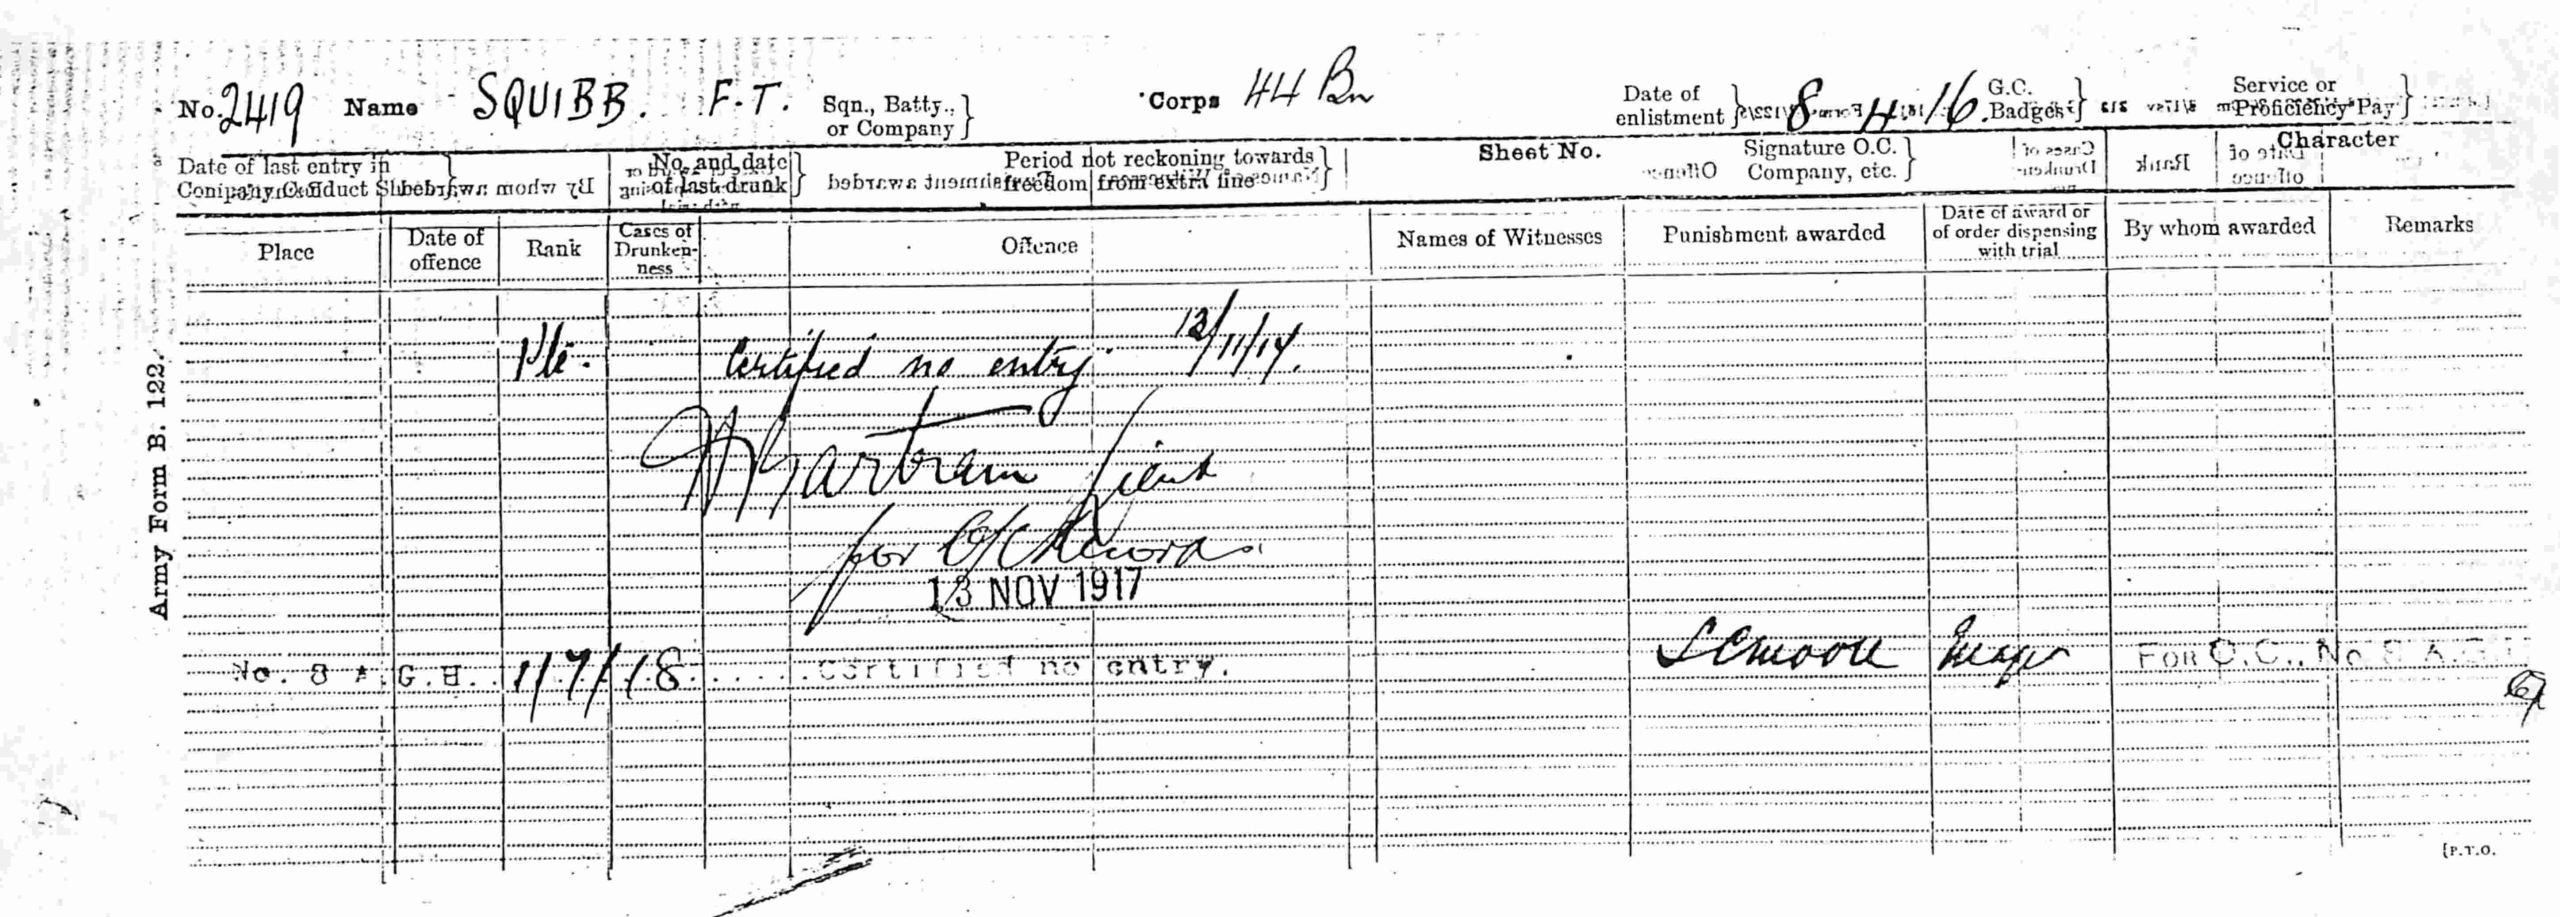 No. 2419 Name SQUIBB. F.T. Sqn., Batty., or Company } Corps 44 Bn Date of enlistment } 8.4.16. G.C. Badges } Service or Proficiency Pay }
Date of last entry in Company Conduct Sheet } No. and date of last drunk } Period not reckoning towards freedom from extra fine } Sheet No. Signature O.C. Company, etc. } Character
Place Date of offence Rank Cases of Drunkenness Offence Names of Witnesses Punishment awarded Date of award or of order dispensing with trial By whom awarded Remarks
Pte. Certified no entry 12/11/17.
Bartram Lieut
for O/C Records.
13 NOV 1917
No. 8 A.G.H. 1/7/18 Certified no entry. Major FOR O.C., No 8 A.G.
Army Form B. 122.
[P.T.O.